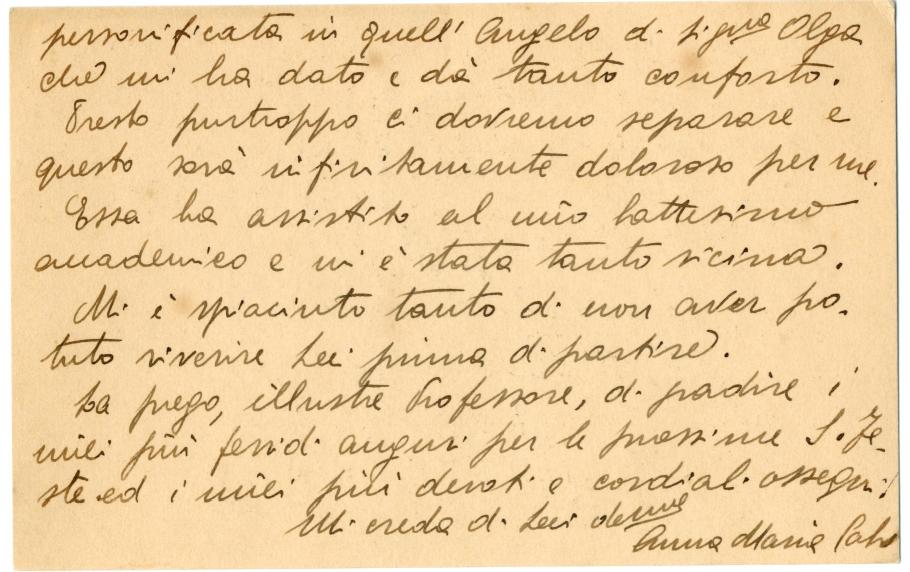 personificata in quell' Angelo di sig.na Olga
che mi ha dato e dà tanto conforto.
Presto purtroppo ci dovremo separare e
questo sarà infinitamente doloroso per me.
Essa ha assistito al mio battesimo
accademico e mi è stata tanto vicina.
Mi è spiaciuto tanto di non aver po-
tuto riverire Lei prima di partire.
La prego, illustre Professore, di gradire i
miei più fervidi auguri per le prossime S. Fe-
ste ed i miei più devoti e cordiali ossequi!
Mi creda di Lei dev.ma
Anna Maria